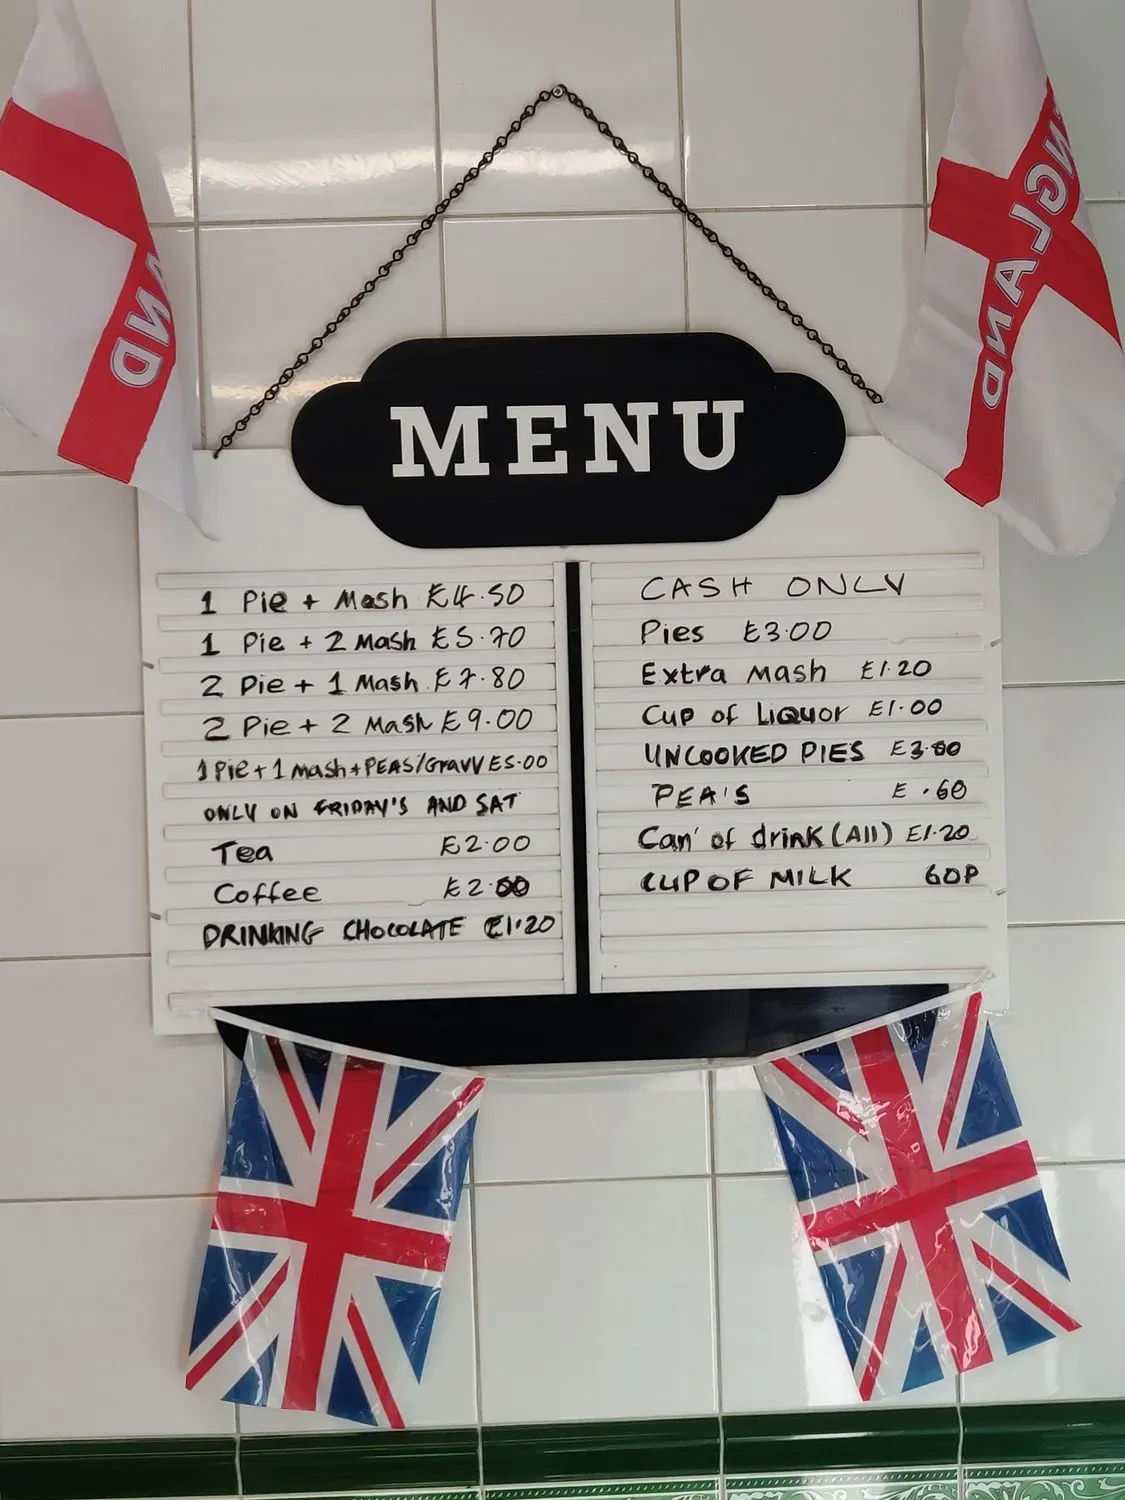 ENGLAND
AND
MENU
1 Pie + Mash £4.50
1 Pie + 2 Mash £5.70
2 Pie + 1 Mash £7.80
2 Pie + 2 Mash £9.00
1 Pie + 1 Mash + PEAS/Gravy £5.00
ONLY ON FRIDAY'S AND SAT
Tea £2.00
Coffee £2.00
DRINKING CHOCOLATE £1.20
CASH ONLY
Pies £3.00
Extra Mash £1.20
Cup of LIQUOR £1.00
UNCOOKED PIES £3.00
PEA'S £ .60
Can' of drink (All) £1.20
CUP OF MILK 60P